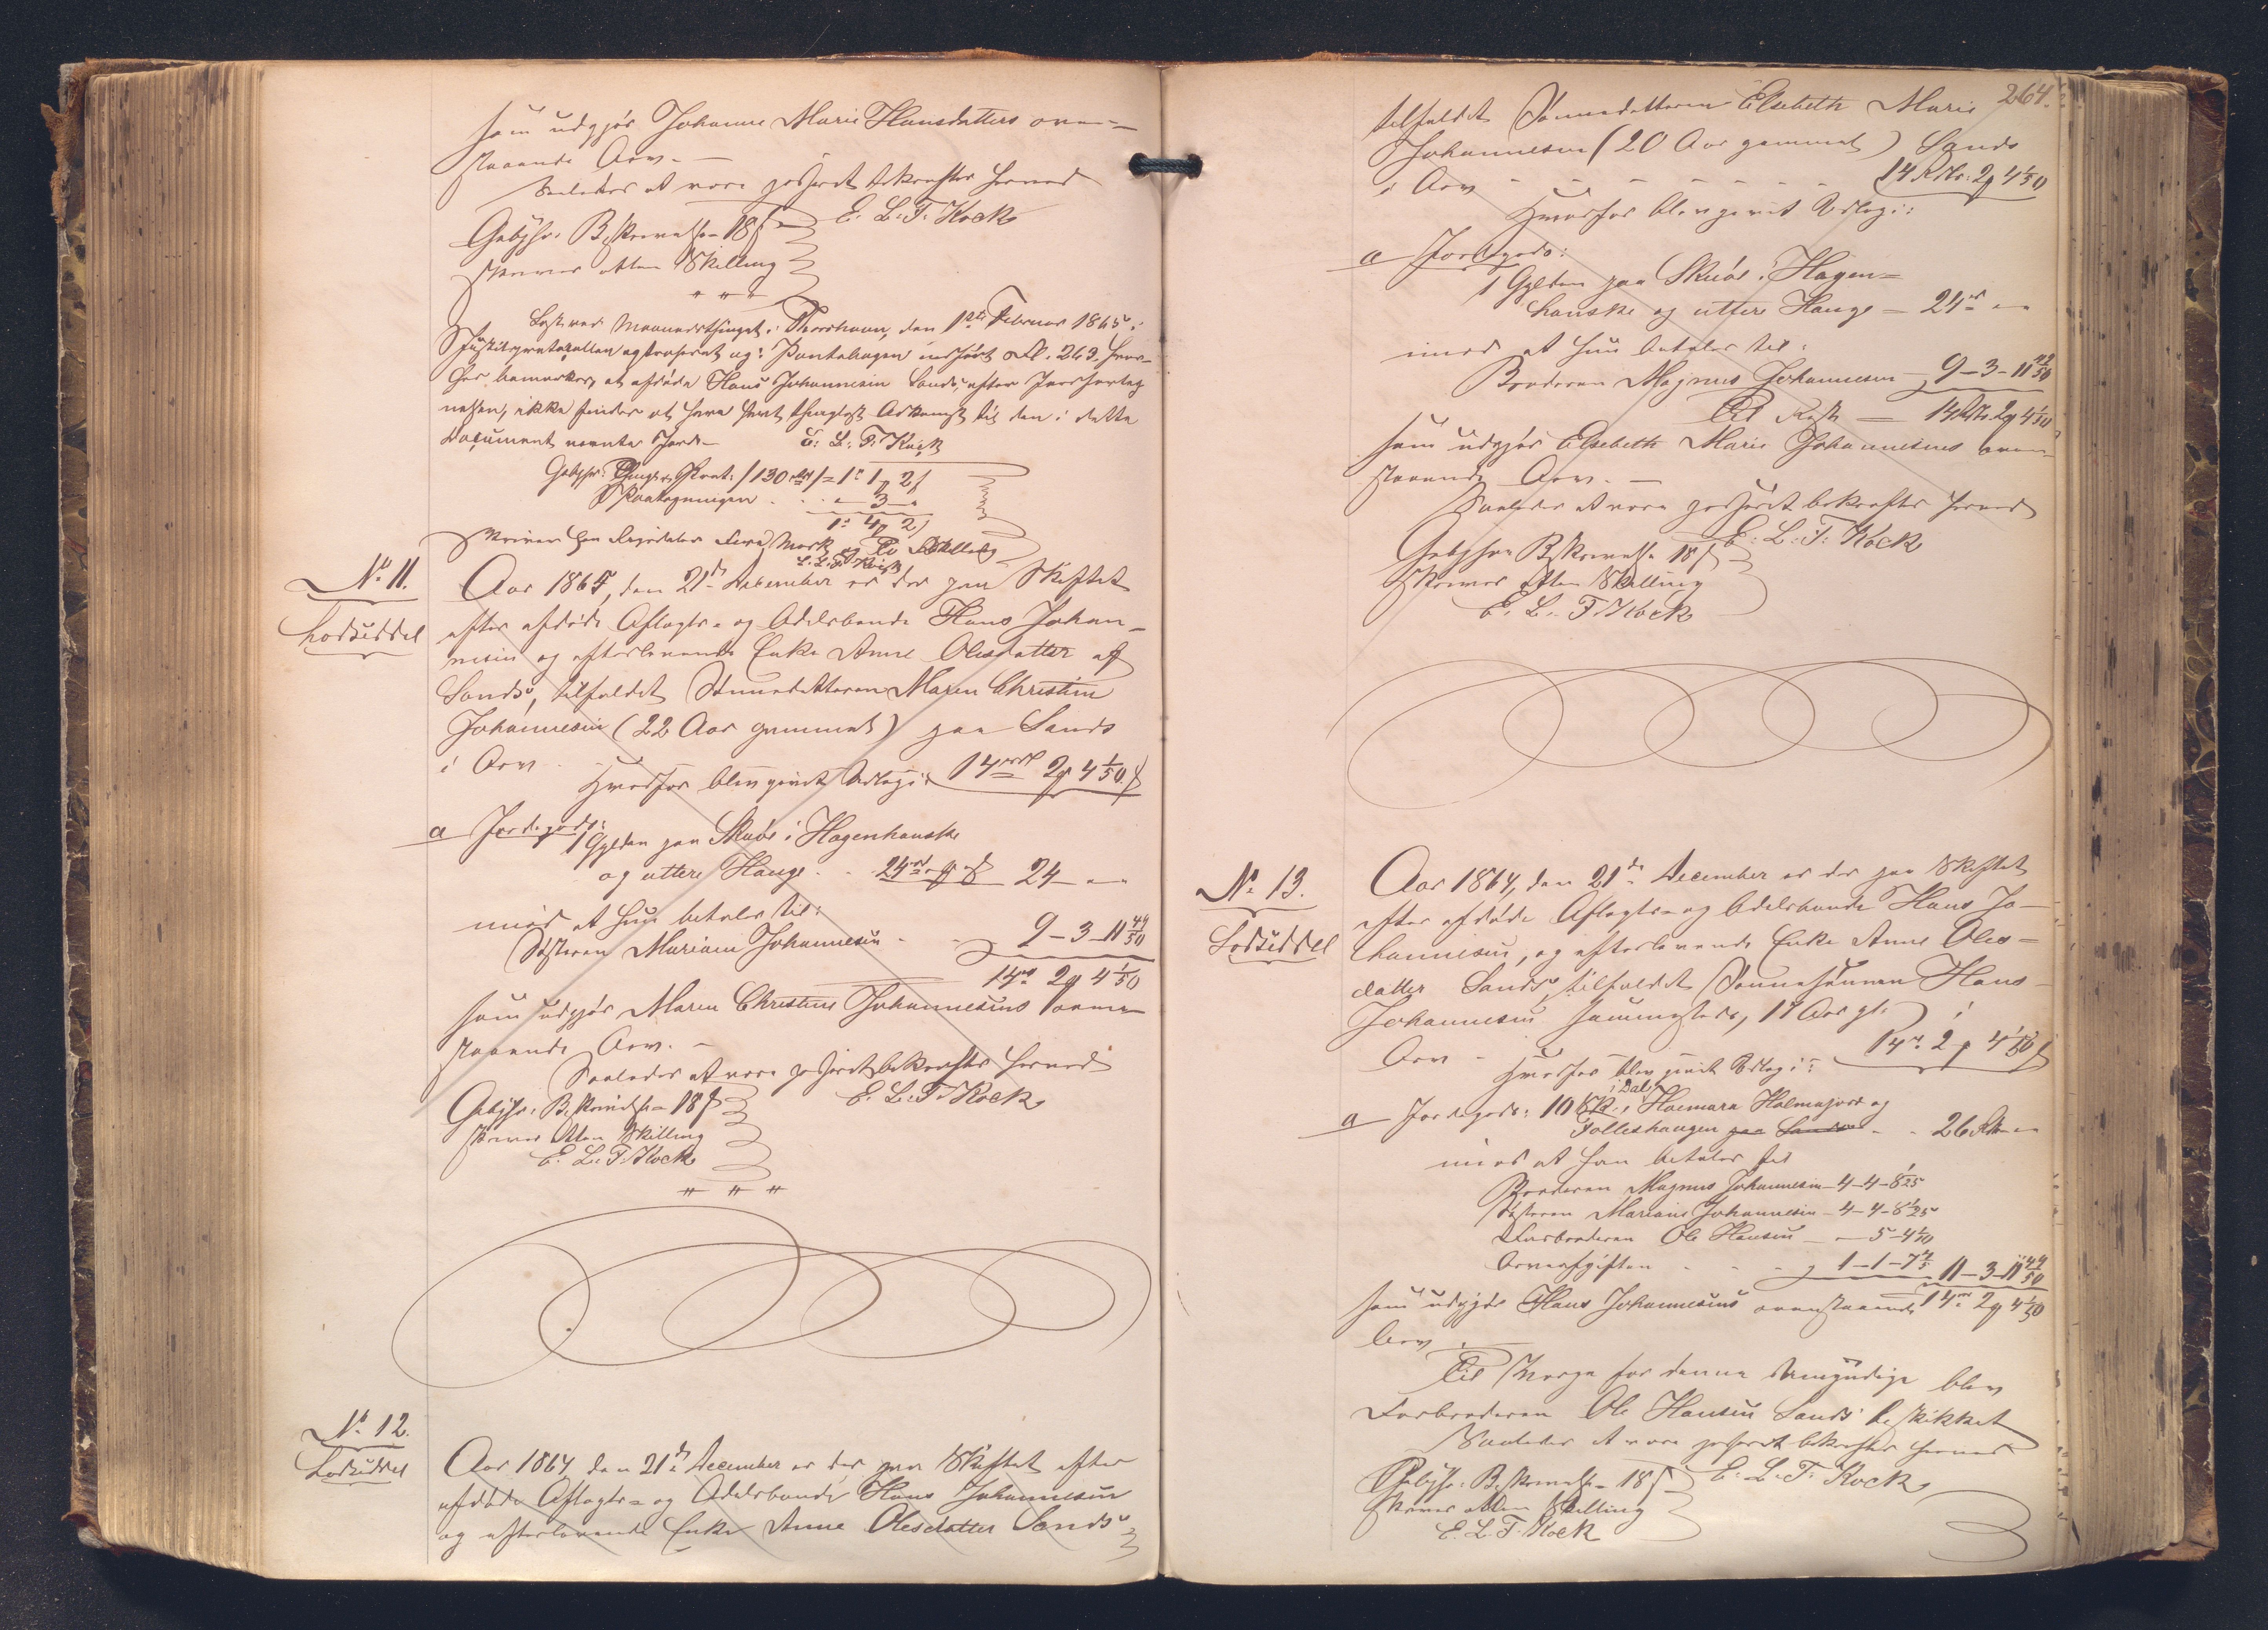 som udgjør Johanne Marie Hansdatters oven-
staaende Arv. —
Saaledes at være passeret bekræftes herved
E. L. T. Kock
Gebyhr: Beskrivelse 18 ß
skriver atten Skilling
Læst ved Maanedsthinget i Thorshavn, den 1ste Februar 1865 i
Justitsprotocollen extraheret og i Pantebogen indført Fol. 263. Her-
hos bemærkes, at afdøde Hans Johannesen Sands, efter Jordforteg
nelsen, ikke findes at have havt thinglyst Adkomst til den i dette
Document nævnte Jord.— E. L. T. Kock
Gebyhr: /130 rd/ = 1 rd 1 ꝳ 2 ß
Paategningen . . . - 3 -
1 rd 4 ꝳ 2 ß
skriver Een Rigsdaler Fire Mark og To Skilling
E. L. T. Kock
No 11.
Lodseddel
Aar 1864, den 21de December er der paa Skiftet
efter afdøde Aftægts- og Odelsbonde Hans Johan-
nesen og efterlevende Enke Anne Olesdatter af
Sands, tilfaldet Sønnedatteren Maren Christine
Johannesen (22 Aar gammel) paa Sands
i Arv - 14 rd 2 ꝳ 4 1/50 ß
Hvorfor blev givet Udlæg i:
a Jordegods:
1 Gylden paa Skuøe i Hagenhauske
og uttere Hauge . . 24 rd ꝳ ß 24 - -
mod at hun betaler til:
Søsteren Mariane Johannesen - - 9 - 3 - 11 49/50
14 rd 2 ꝳ 4 1/50
som udgjør Maren Christine Johannesens oven-
staaende Arv. —
Saaledes at være passeret bekræftes herved
E. L. T. Kock
Gebyhr: Beskrivelse 18 ß
skriver Atten Skilling
E. L. T. Kock
No 12.
Lodseddel
Aar 1864, den 21de December er der paa Skiftet efter
afdøde Aftægts- og Odelsbonde Hans Johannesen
og efterlevende Enke Anne Olesdatter Sands
264.
tilfaldet Sønnedatteren Elsebeth Marie
Johannesen (20 Aar gammel) Sands
i Arv - - - - - - 14 Rdlr. 2 ꝳ 4 1/50
Hvorfor blev givet Udlæg i:
a Jordegods:
1 Gylden paa Skuøe i Hagen-
hauske og uttere Hauge — 24 rd - -
imod at hun betaler til:
Broderen Magnus Johannesen — 9 - 3 - 11 49/50
Til Rest — 14 Rdlr. 2 ꝳ 4 1/50
som udgjør Elsebeth Marie Johannesens oven-
staaende Arv. —
Saaledes at være passeret bekræftes herved
E. L. T. Kock
Gebyhr Beskrivelse 18 ß
skriver Atten Skilling
E. L. T. Kock
No 13.
Lodseddel
Aar 1864, den 21de December er der paa Skiftet
efter afdøde Aftægts- og Odelsbonde Hans Jo-
hannesen, og efterlevende Enke Anne Oles-
datter Sands, tilfaldet Sønnesønnen Hans
Johannesen sammesteds, 17 Aar gl. i
Arv - 14 rd 2 ꝳ 4 1/50 ß
Hvorfor blev givet Udlæg i:
i Dal
a Jordegods: 10 Sk. i Hoimara Holmajord og
Tolleshaugen paa Sands - - 26 Rd - -
imod at han betaler til
Broderen Magnus Johannesen — 4 - 4 - 8 1/25
Søsteren Mariane Johannesen — 4 - 4 - 8 1/25
Farbroderen Ole Hansen — - 5 - 4 1/10
Arveafgiften - - - 1 - 1 - 7 4/5 11 - 3 - 11 49/50
som udgjør Hans Johannesens ovenstaaende 14 rd 2 ꝳ 4 1/50
Arv.
Til Værge for denne Umyndige blev
Farbroderen Ole Hansen Sands beskikket
Saaledes at være passeret bekræftes herved
E. L. T. Kock
Gebyhr: Beskrivelse 18 ß
skriver Atten Skilling
E. L. T. Kock